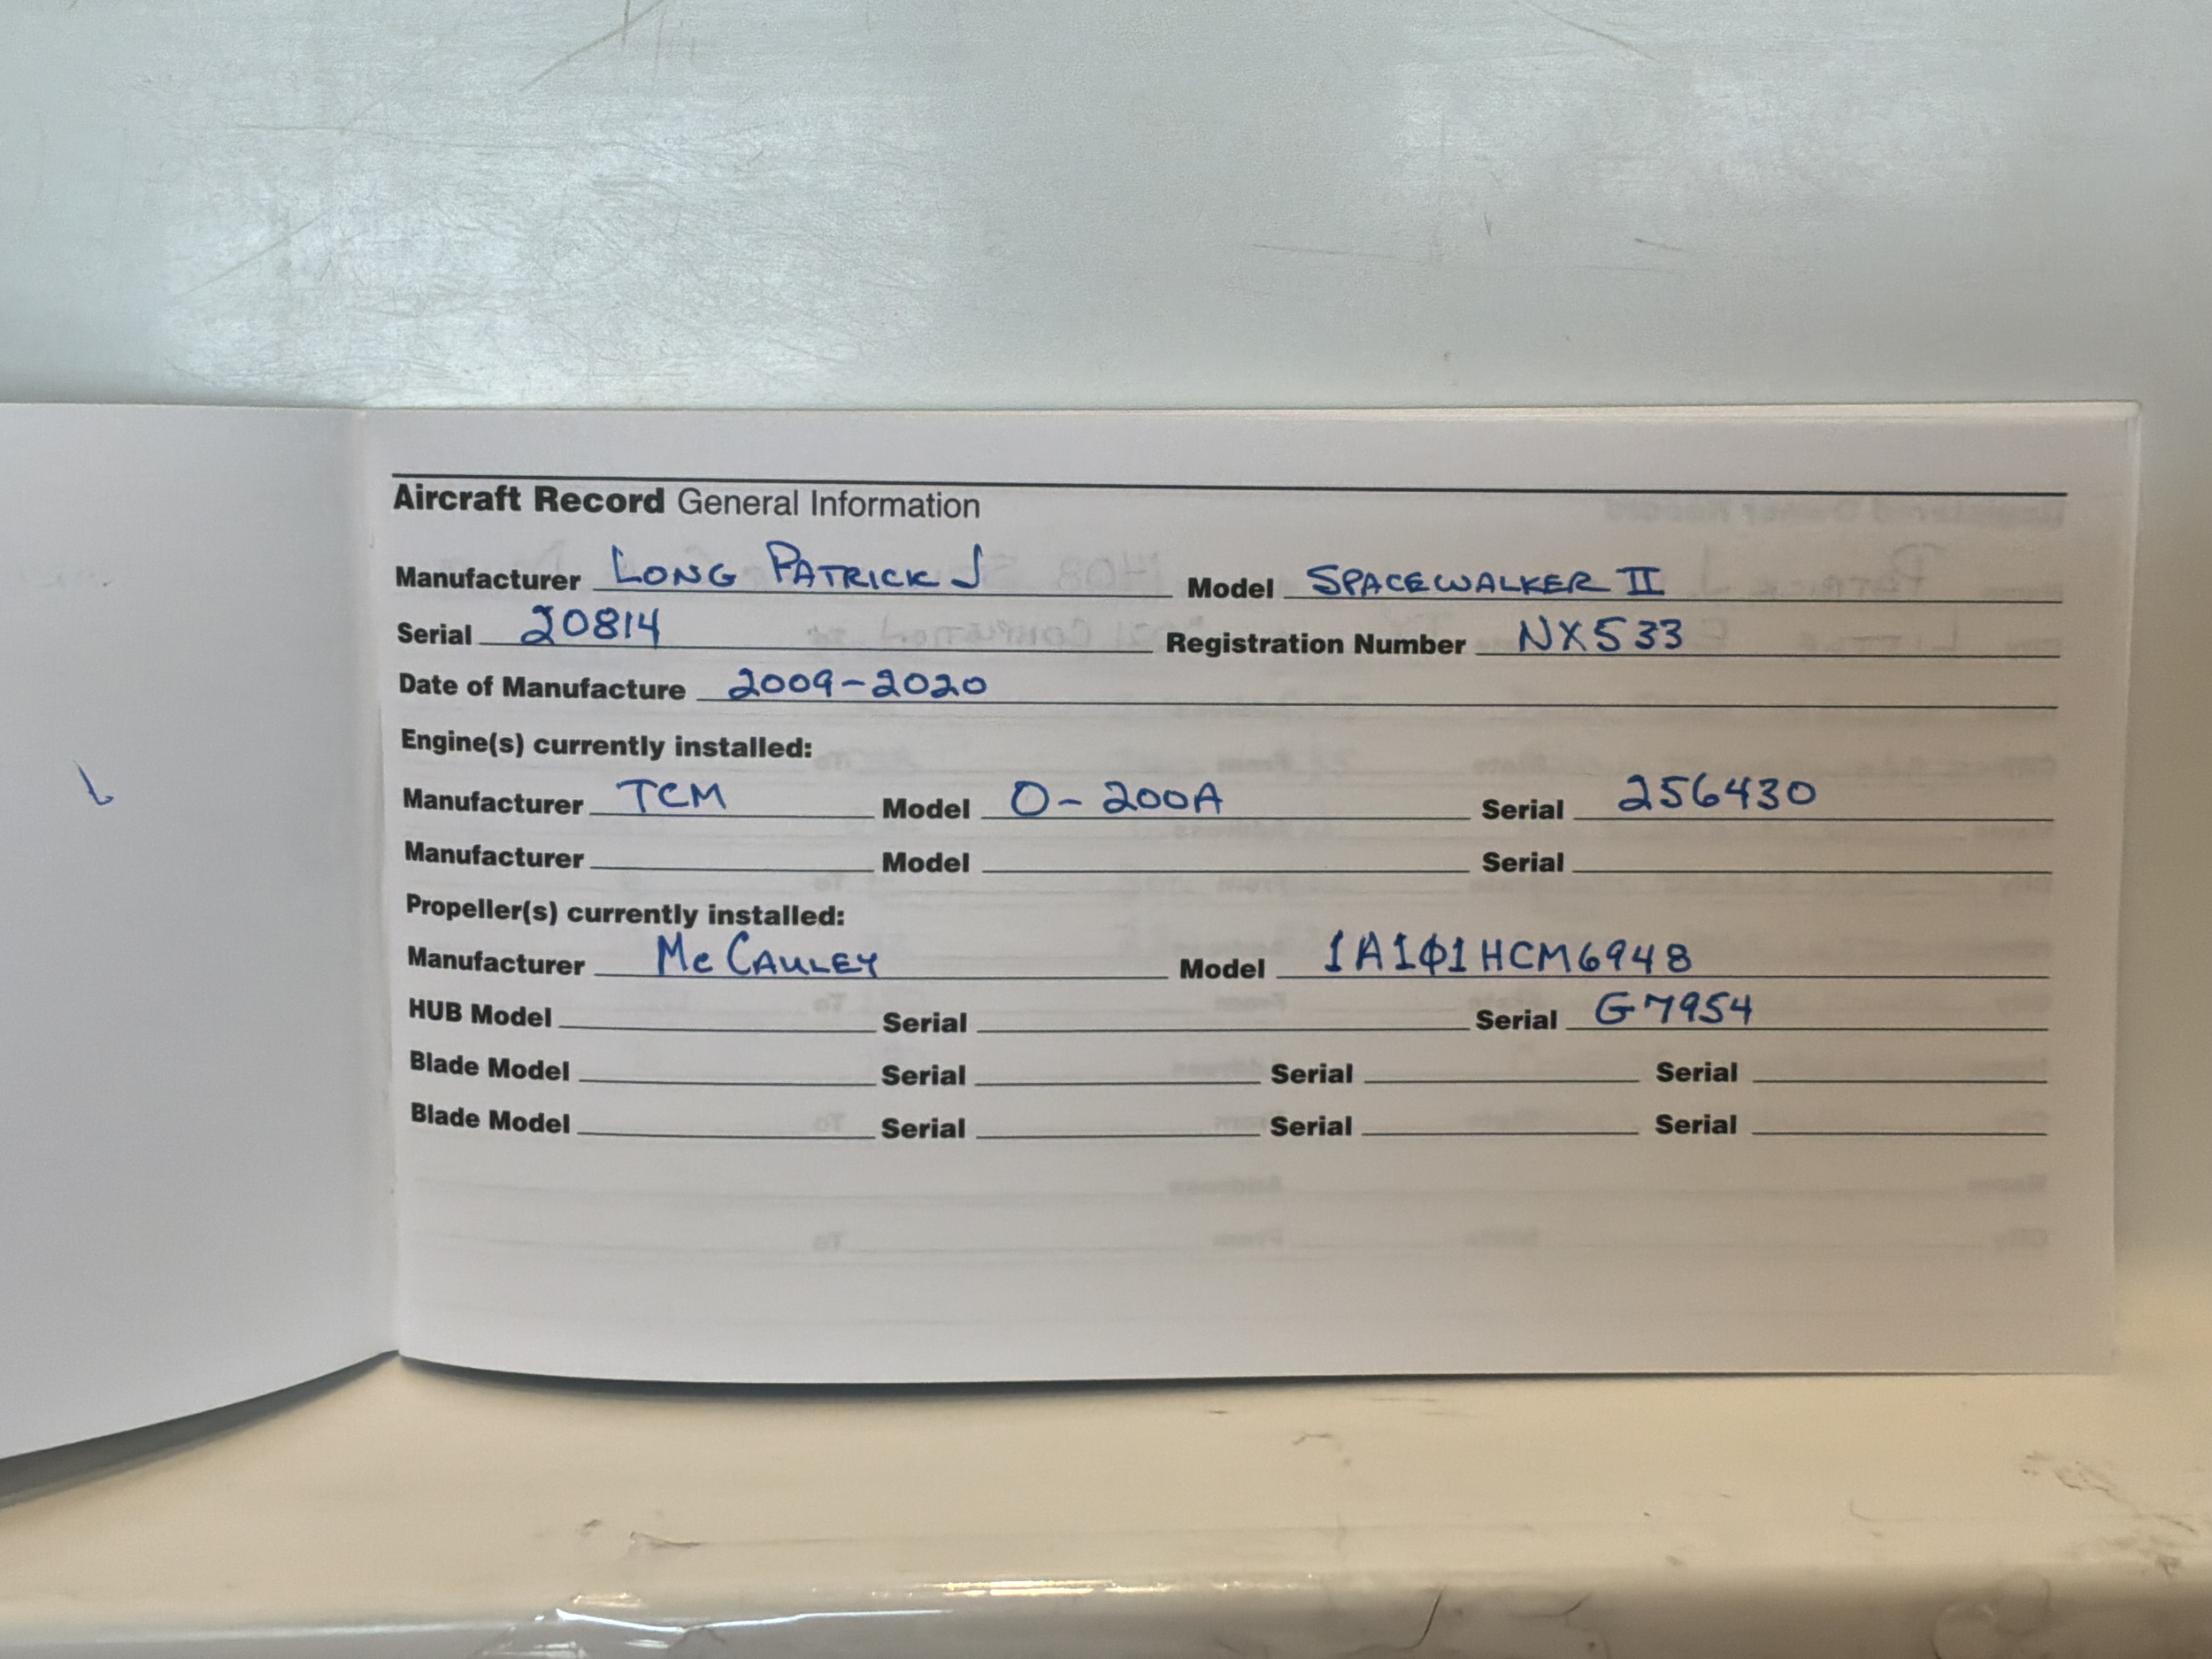 Aircraft Record General Information
Manufacturer LONG PATRICK J Model SPACEWALKER II
Serial 20814 Registration Number NX533
Date of Manufacture 2009-2020
Engine(s) currently installed:
Manufacturer TCM Model O-200A Serial 256430
Manufacturer Model Serial
Propeller(s) currently installed:
Manufacturer McCAULEY Model 1A101HCM6948
HUB Model Serial Serial G7954
Blade Model Serial Serial Serial
Blade Model Serial Serial Serial